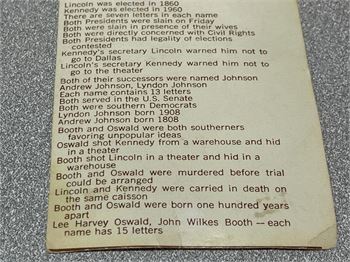 Lincoln was elected in 1860
Kennedy was elected in 1960
There are seven letters in each name
Both Presidents were slain on Friday
Both were slain in presence of their wives
Both were directly concerned with Civil Rights
Both Presidents had legality of elections
contested
Kennedy's secretary Lincoln warned him not
go to Dallas
Lincoln's secretary Kennedy warned him not
to go to the theater
Both of their successors were named Johnson
Andrew Johnson, Lyndon Johnson
Each name contains 13 letters
Both served in the U.S. Senate
Both were southern Democrats
Lyndon Johnson born 1908
Andrew Johnson born 1808
Booth and Oswald were both southerners
favoring unpopular ideas
Oswald shot Kennedy from a warehouse and hid
in a theater
Booth shot Lincoln in a theater and hid in a
warehouse
Booth and Oswald were murdered before trial
could be arranged
Lincoln and Kennedy were carried in death on
the same caisson
Booth and Oswald were born one hundred years
apart
Lee Harvey Oswald, John Wilkes Booth — each
name has 15 letters